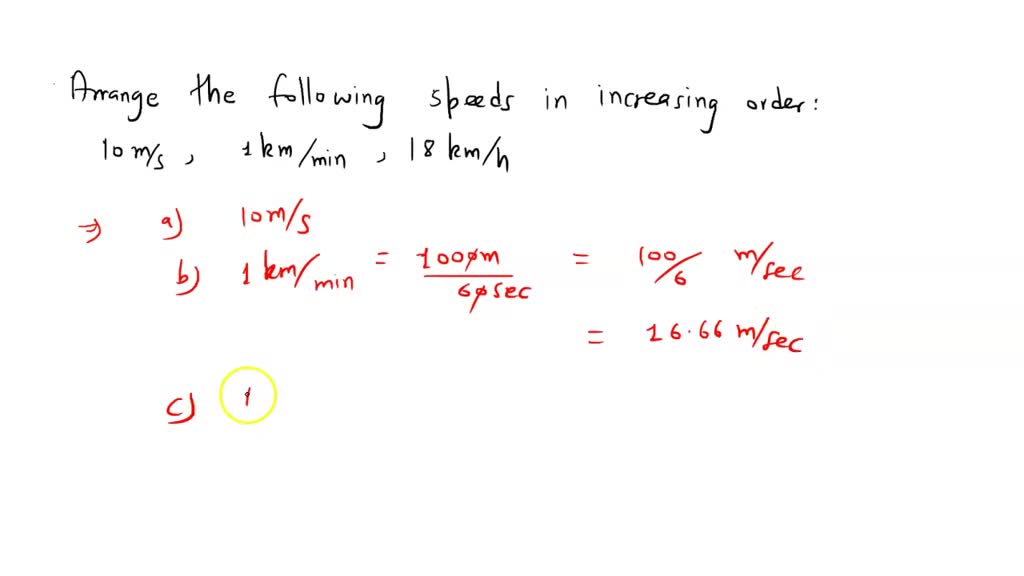 Arrange the following speeds in increasing order:
10 m/s, 1 km/min, 18 km/h
⇒ a) 10 m/s
b) 1 km/min = 1000m/60sec = 100/6 m/sec
= 16.66 m/sec
c) 1